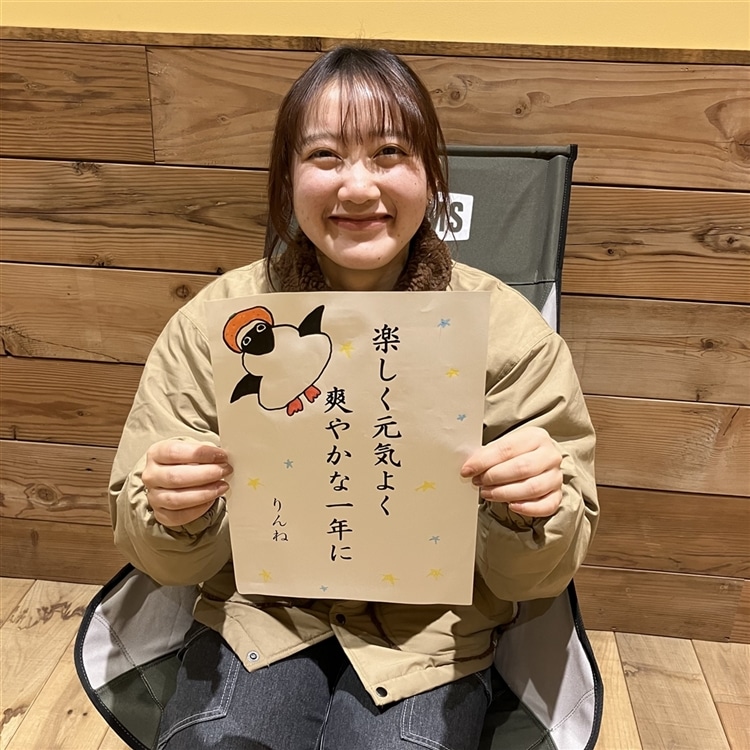 楽しく元気よく
爽やかな一年に
りんね
MS